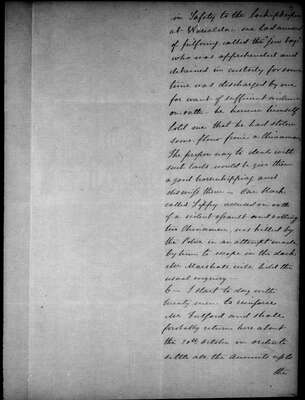 in Safety to the Lockup keeper
at Warialda. one lad accused
of pilfering called the few boys
who was apprehended and
detained in custody for some
time was discharged by me
for want of sufficient evidence
on oath. he however himself
told me that he had stolen
some flour from a Chinaman
The proper way to deal with
such lads would be give them
a good horsewhipping and
dismiss them. One Black
called Tippy accused on oath
of a violent assault and robbing
two Chinamen, was killed by
the Police in an attempt made
by him to escape in the dark.
Mr Marshall will hold the
usual enquiry.
6 — I start to day with
twenty men to reinforce
Mr Fulford and shall
probably return here about
the 20th October in order to
settle all the accounts up to
the